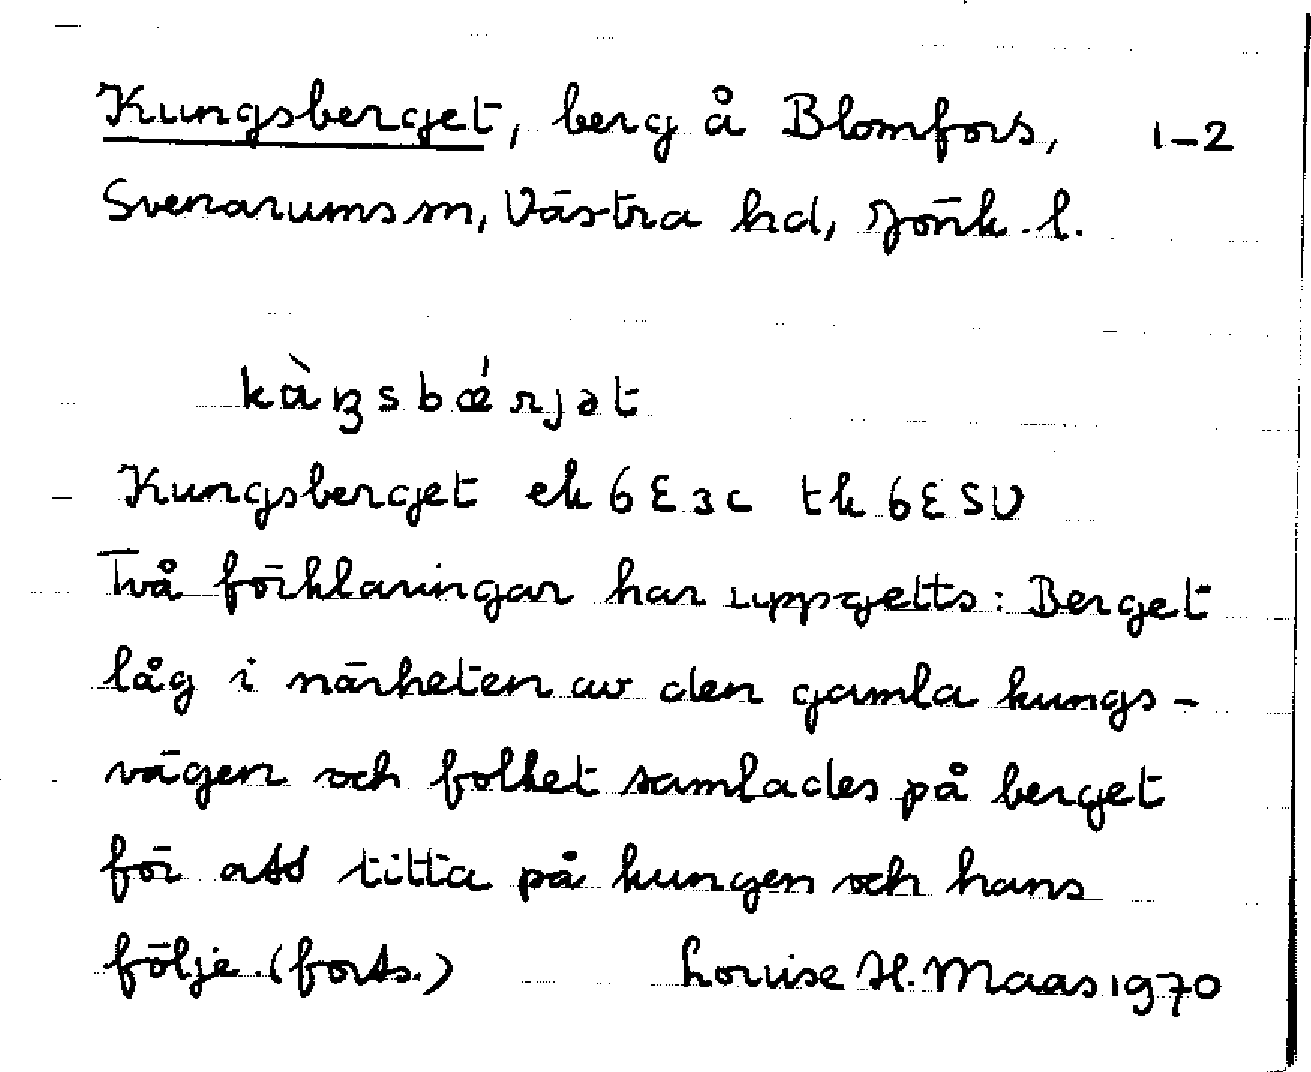 Kungsberget, berg å Blomfors, 1-2
Svenarums sn, Västra hd, Jönk. l.
kàŋsbǽrjət
Kungsberget ek 6E3c tk 6ESV
Två förklaringar har uppgetts: Berget
låg i närheten av den gamla kungs-
vägen och folket samlades på berget
för att titta på kungen och hans
följe. (forts.) Louise H. Maas 1970